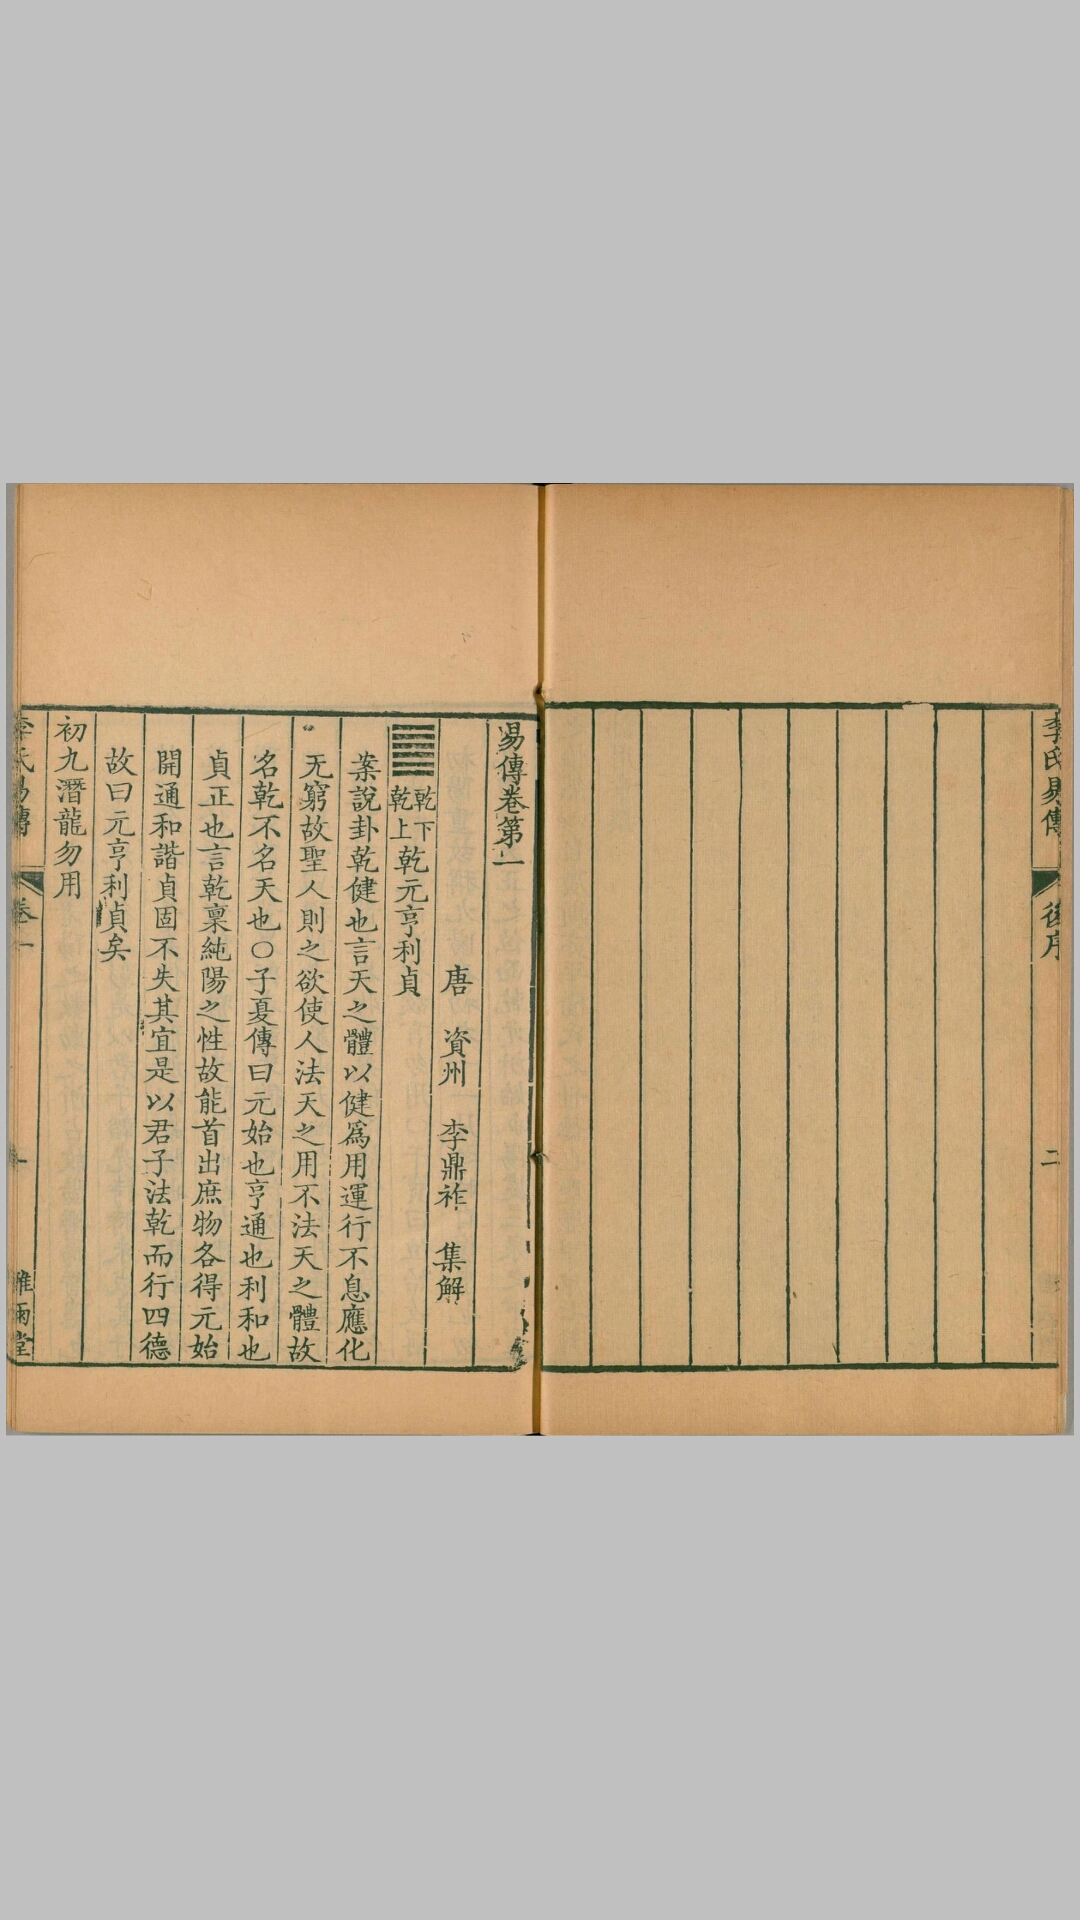 李氏易傳
後序
二
易傳卷第一
唐 資州 李鼎祚 集解
乾下
乾上
乾元亨利貞
案說卦乾健也言天之體以健爲用運行不息應化
无窮故聖人則之欲使人法天之用不法天之體故
名乾不名天也○子夏傳曰元始也亨通也利和也
貞正也言乾稟純陽之性故能首出庶物各得元始
開通和諧貞固不失其宜是以君子法乾而行四德
故曰元亨利貞矣
初九潛龍勿用
李氏易傳
卷一
一
雅雨堂